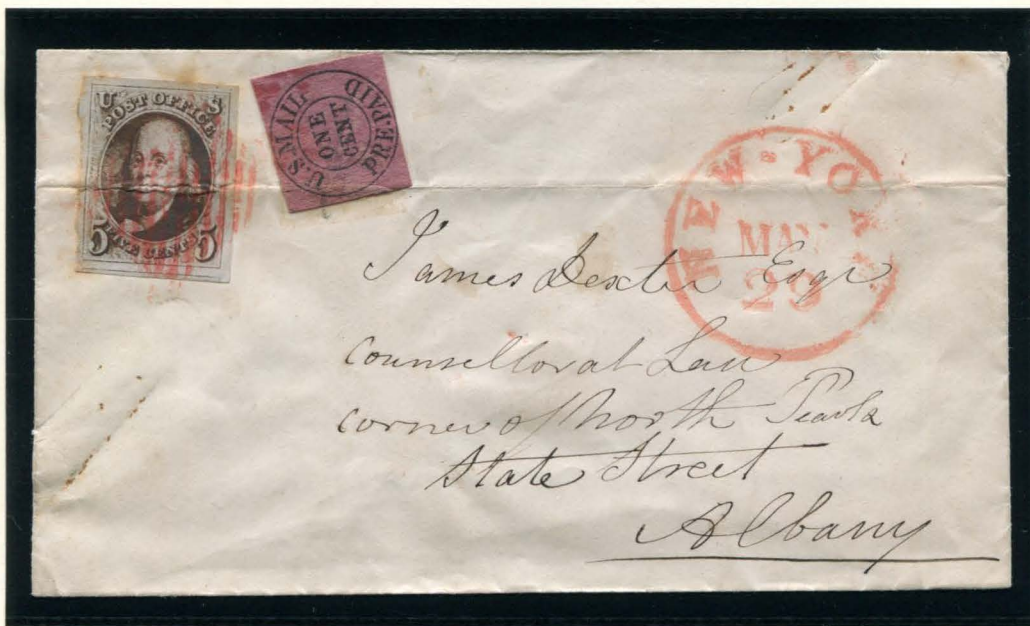 U S
POST OFFICE
5 FIVE CENTS 5
U.S MAIL
ONE
CENT
PRE-PAID
NEW-YORK
MAY
29
James Dexter Esqr
Counsellor at Law
corner of North Pearl &
State Street
Albany